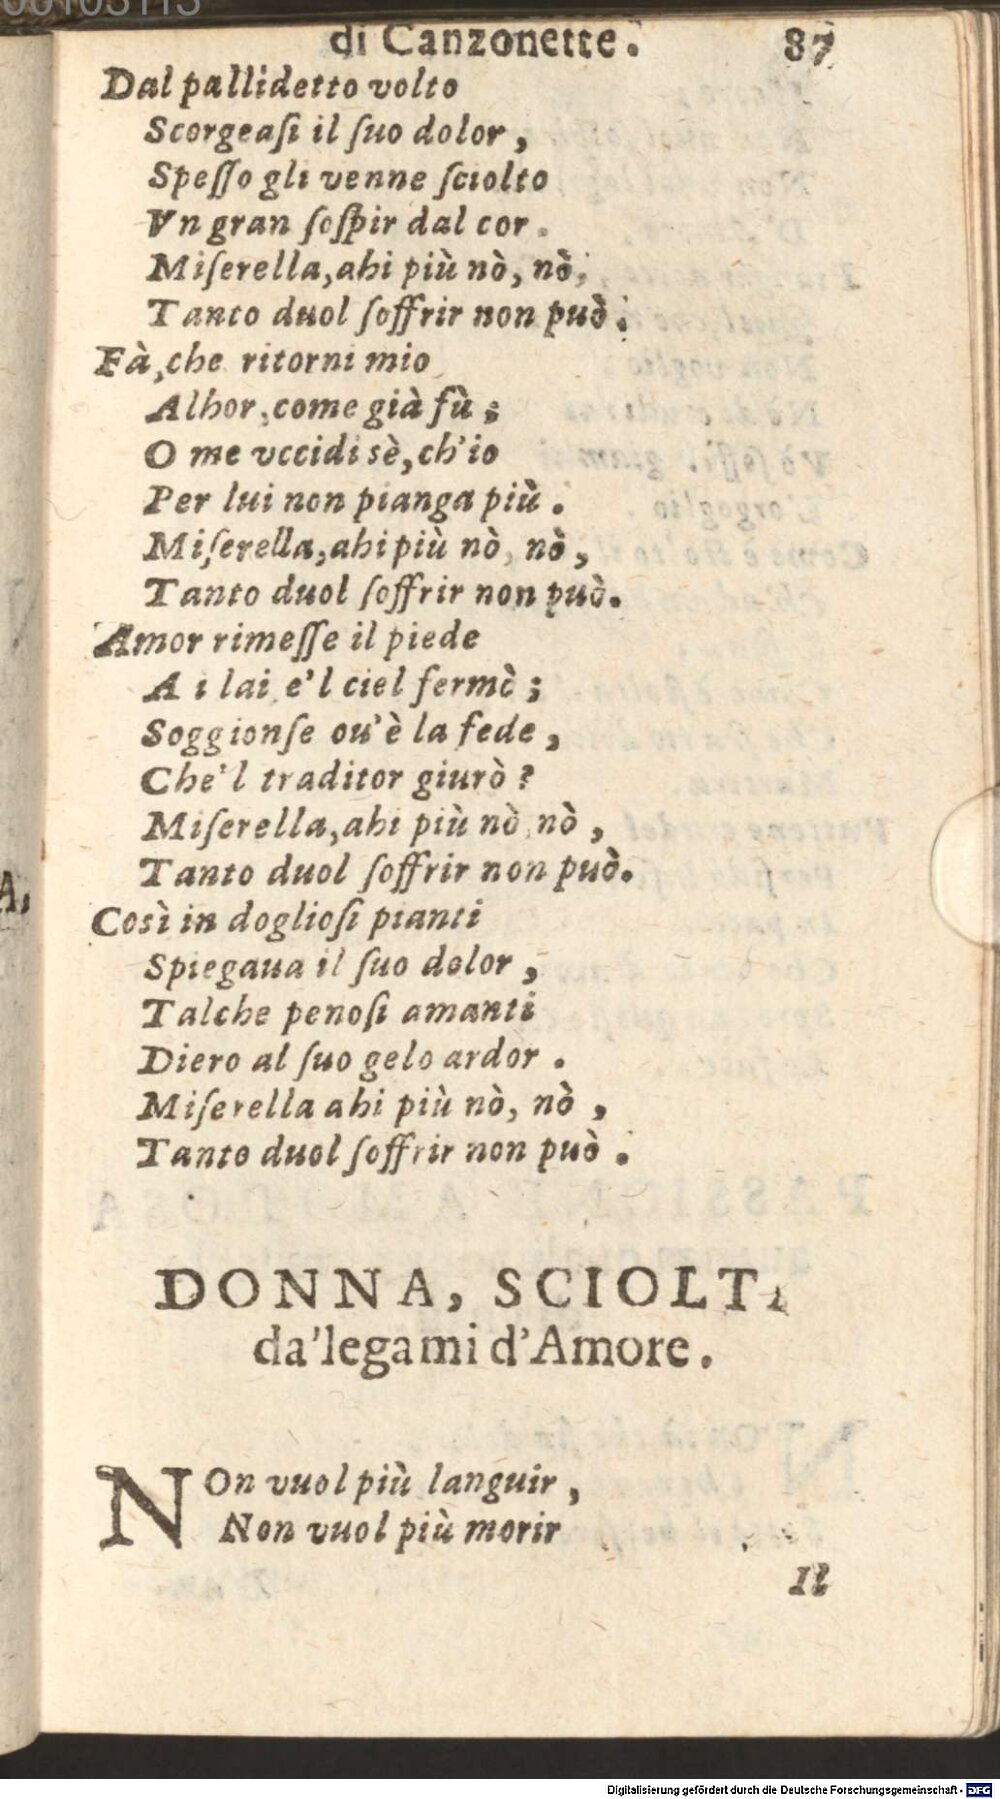 di Canzonette. 87
Dal pallidetto volto
Scorgeaſi il ſuo dolor,
Speſſo gli venne ſciolto
Vn gran ſoſpir dal cor.
Miſerella, ahi più nò, nò,
Tanto duol ſoffrir non può.
Fà, che ritorni mio
Alhor, come già fù;
O me vccidi sè, ch'io
Per lui non pianga più.
Miſerella, ahi più nò, nò,
Tanto duol ſoffrir non può.
Amor rimeſſe il piede
A i lai, e'l ciel fermò;
Soggionſe ou'è la fede,
Che'l traditor giurò?
Miſerella, ahi più nò, nò,
Tanto duol ſoffrir non può.
Così in doglioſi pianti
Spiegaua il ſuo dolor,
Talche penoſi amanti
Diero al ſuo gelo ardor.
Miſerella ahi più nò, nò,
Tanto duol ſoffrir non può.
DONNA, SCIOLTA
da'legami d'Amore.
NOn vuol più languir,
Non vuol più morir
Il
A,
Digitalisierung gefördert durch die Deutsche Forschungsgemeinschaft - DFG